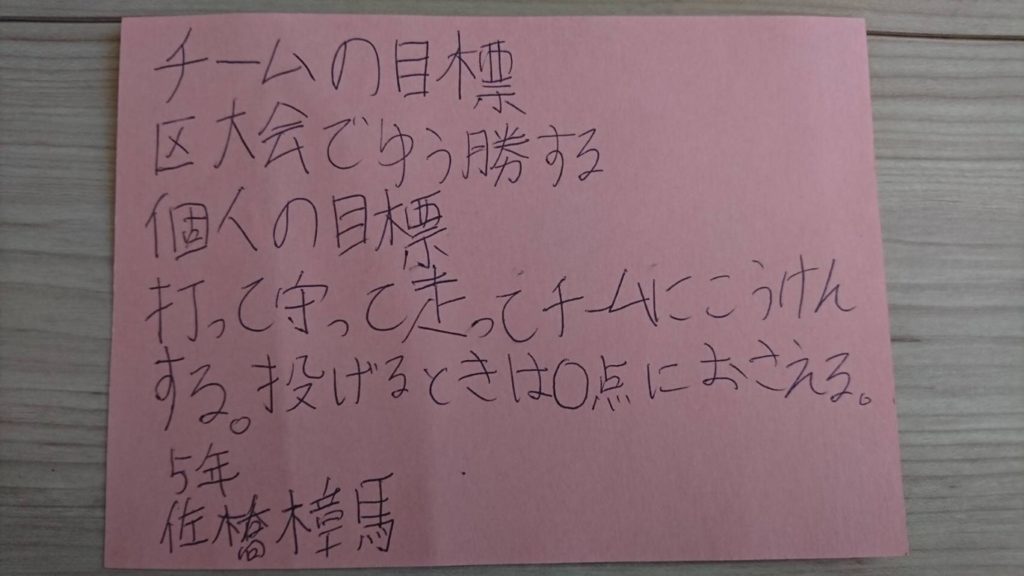 チームの目標
区大会でゆう勝する
個人の目標
打って守って走ってチームにこうけん
する。投げるときは0点におさえる。
5年
佐橋樟馬